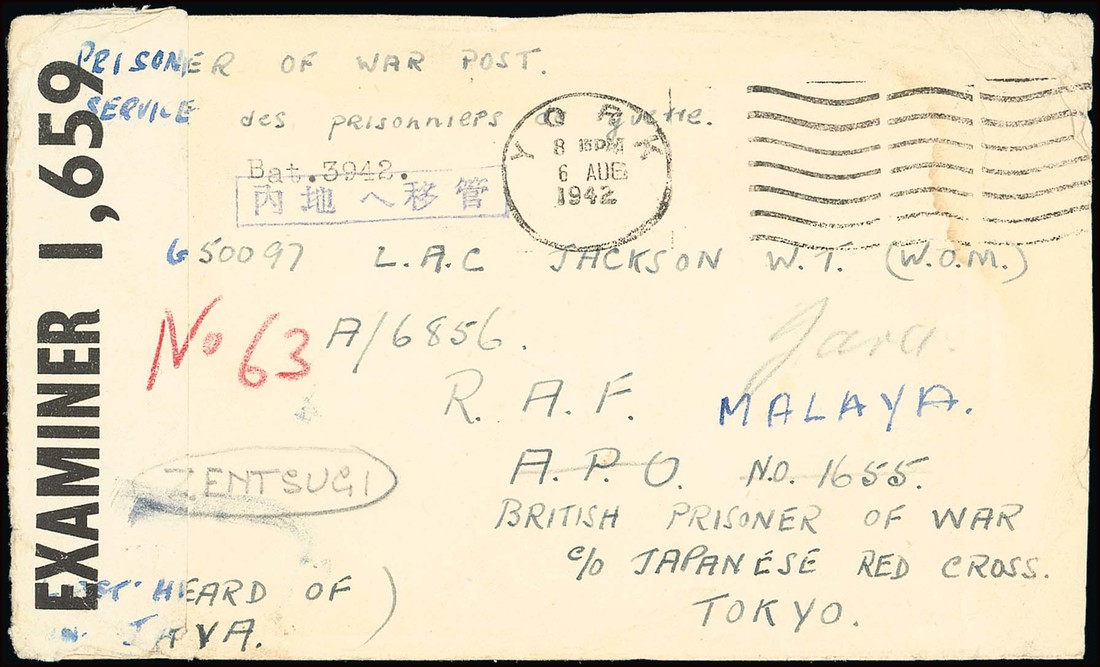 EXAMINER 1,659
PRISONER OF WAR POST.
SERVICE des prisonniers de guerre.
Bat.3942.
内地へ移管
YORK
8
6 AUG
1942
650097 L.A.C JACKSON W.T. (W.O.M.)
No 63
A/6856.
Java.
R.A.F. MALAYA.
ZENTSUGI
A.P.O. NO. 1655.
BRITISH PRISONER OF WAR
c/o JAPANESE RED CROSS.
TOKYO.
HEARD OF )
JAVA.